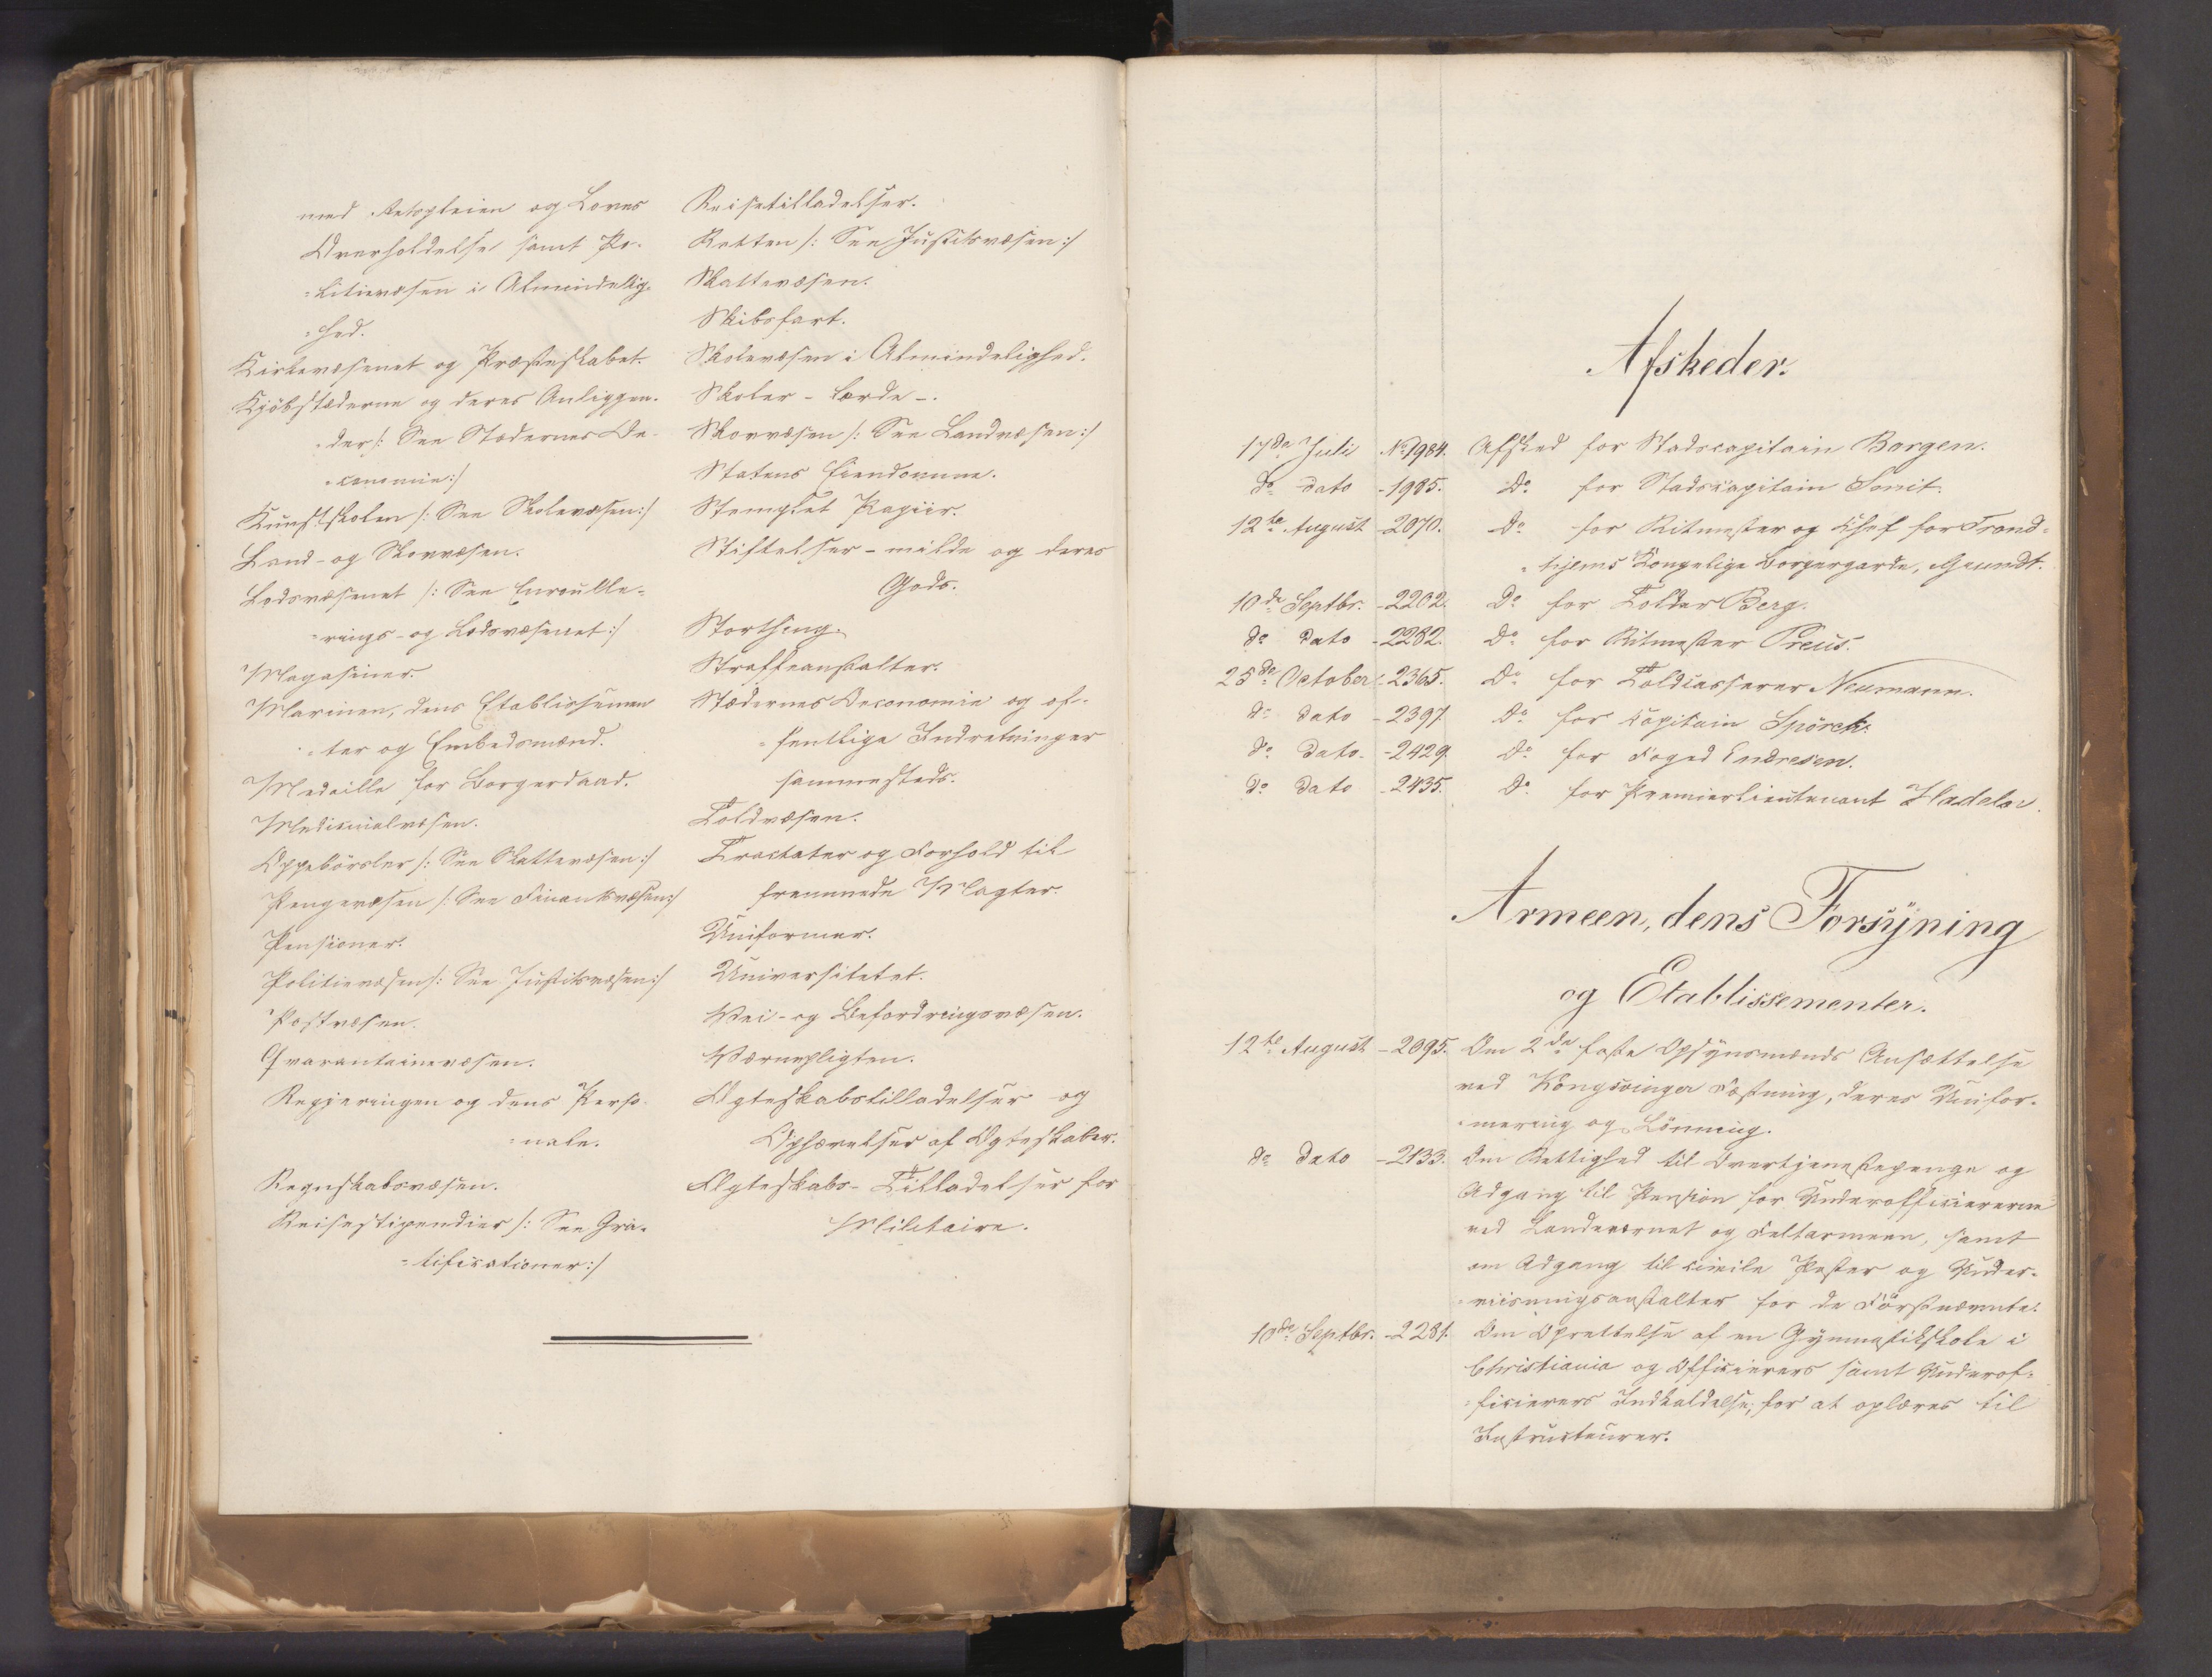 med Retspleien og Loves
Overholdelse samt Po-
=litievæsen i Almindelig-
=hed.
Kirkevæsenet og Præsteskabet.
Kjöbstæderne og deres Anliggen-
=der /: See Stædernes Oe-
=conomie :/
Kunstskolen /: See Skolevæsen :/
Land- og Skovvæsen.
Lodsvæsenet /: See Enroulle-
=rings- og Lodsvæsenet :/
Magasiner.
Marinen, dens Etablissemen
=ter og Embedsmænd.
Medaille for Borgerdaad.
Medicinalvæsen.
Oppebörsler /: See Skattevæsen :/
Pengevæsen /: See Finantsvæsen :/
Pensioner.
Politievæsen /: See Justitsvæsen :/
Postvæsen.
Qvarantainevæsen.
Regjeringen og dens Perso-
=nale.
Regnskabsvæsen.
Reisestipendier /: See Gra-
=tificationer :/
Reisetilladelser.
Retten /: See Justitsvæsen :/
Skattevæsen.
Skibsfart.
Skolevæsen i Almindelighed.
Skoler - lærde -.
Skovvæsen /: See Landvæsen :/
Statens Eiendomme.
Stemplet Papiir.
Stiftelser - milde og deres
Gods.
Storthing.
Straffeanstalter.
Stædernes Oeconomie og of-
=fentlige Indretninger
sammesteds.
Toldvæsen.
Tractater og Forhold til
fremmede Magter.
Uniformer.
Universitetet.
Vei- og Befordringsvæsen.
Værnepligten.
Ægteskabstilladelser og
Ophævelser af Ægteskaber.
Ægteskabs-Tilladelser for
Militaire.
Afskeder.
17de Juli No 1984. Afsked for Stadscapitain Bergen.
do dato - 1985. Do for Stadscapitain Smit.
12te August - 2070. Do for Ritmester og Chef for Trond-
=hjems Kongelige Borgergarde, Grundt.
10de Septbr. - 2202. Do for Tolder Berg.
do dato - 2282. Do for Ritmester Preus.
25de October - 2365. Do for Toldcasserer Neumann.
do dato - 2397. Do for Capitain Spörck.
do dato - 2429. Do for Foged Endresen.
do dato - 2435. Do for Premierlieutenant
Armeen, dens Forsyning
og Etablissementer.
12te August - 2095. Om 2de faste Opsynsmænds Ansættelse
ved Kongsvinger Fæstning, deres Unifor-
=mering og Lönning.
do dato - 2133. Om Rettighed til Overtjenestepenge og
Adgang til Pension for Underofficiererne
ved Landeværnet og Feltarmeen, samt
om Adgang til civile Poster og Under-
=viisningsanstalter for de Förstnævnte.
10de Septbr. - 2281. Om Oprettelse af en Gymnastikskole i
Christiania og Officierers samt Underof-
=ficierers Indkaldelse, for at oplæres til
Instructeurer.